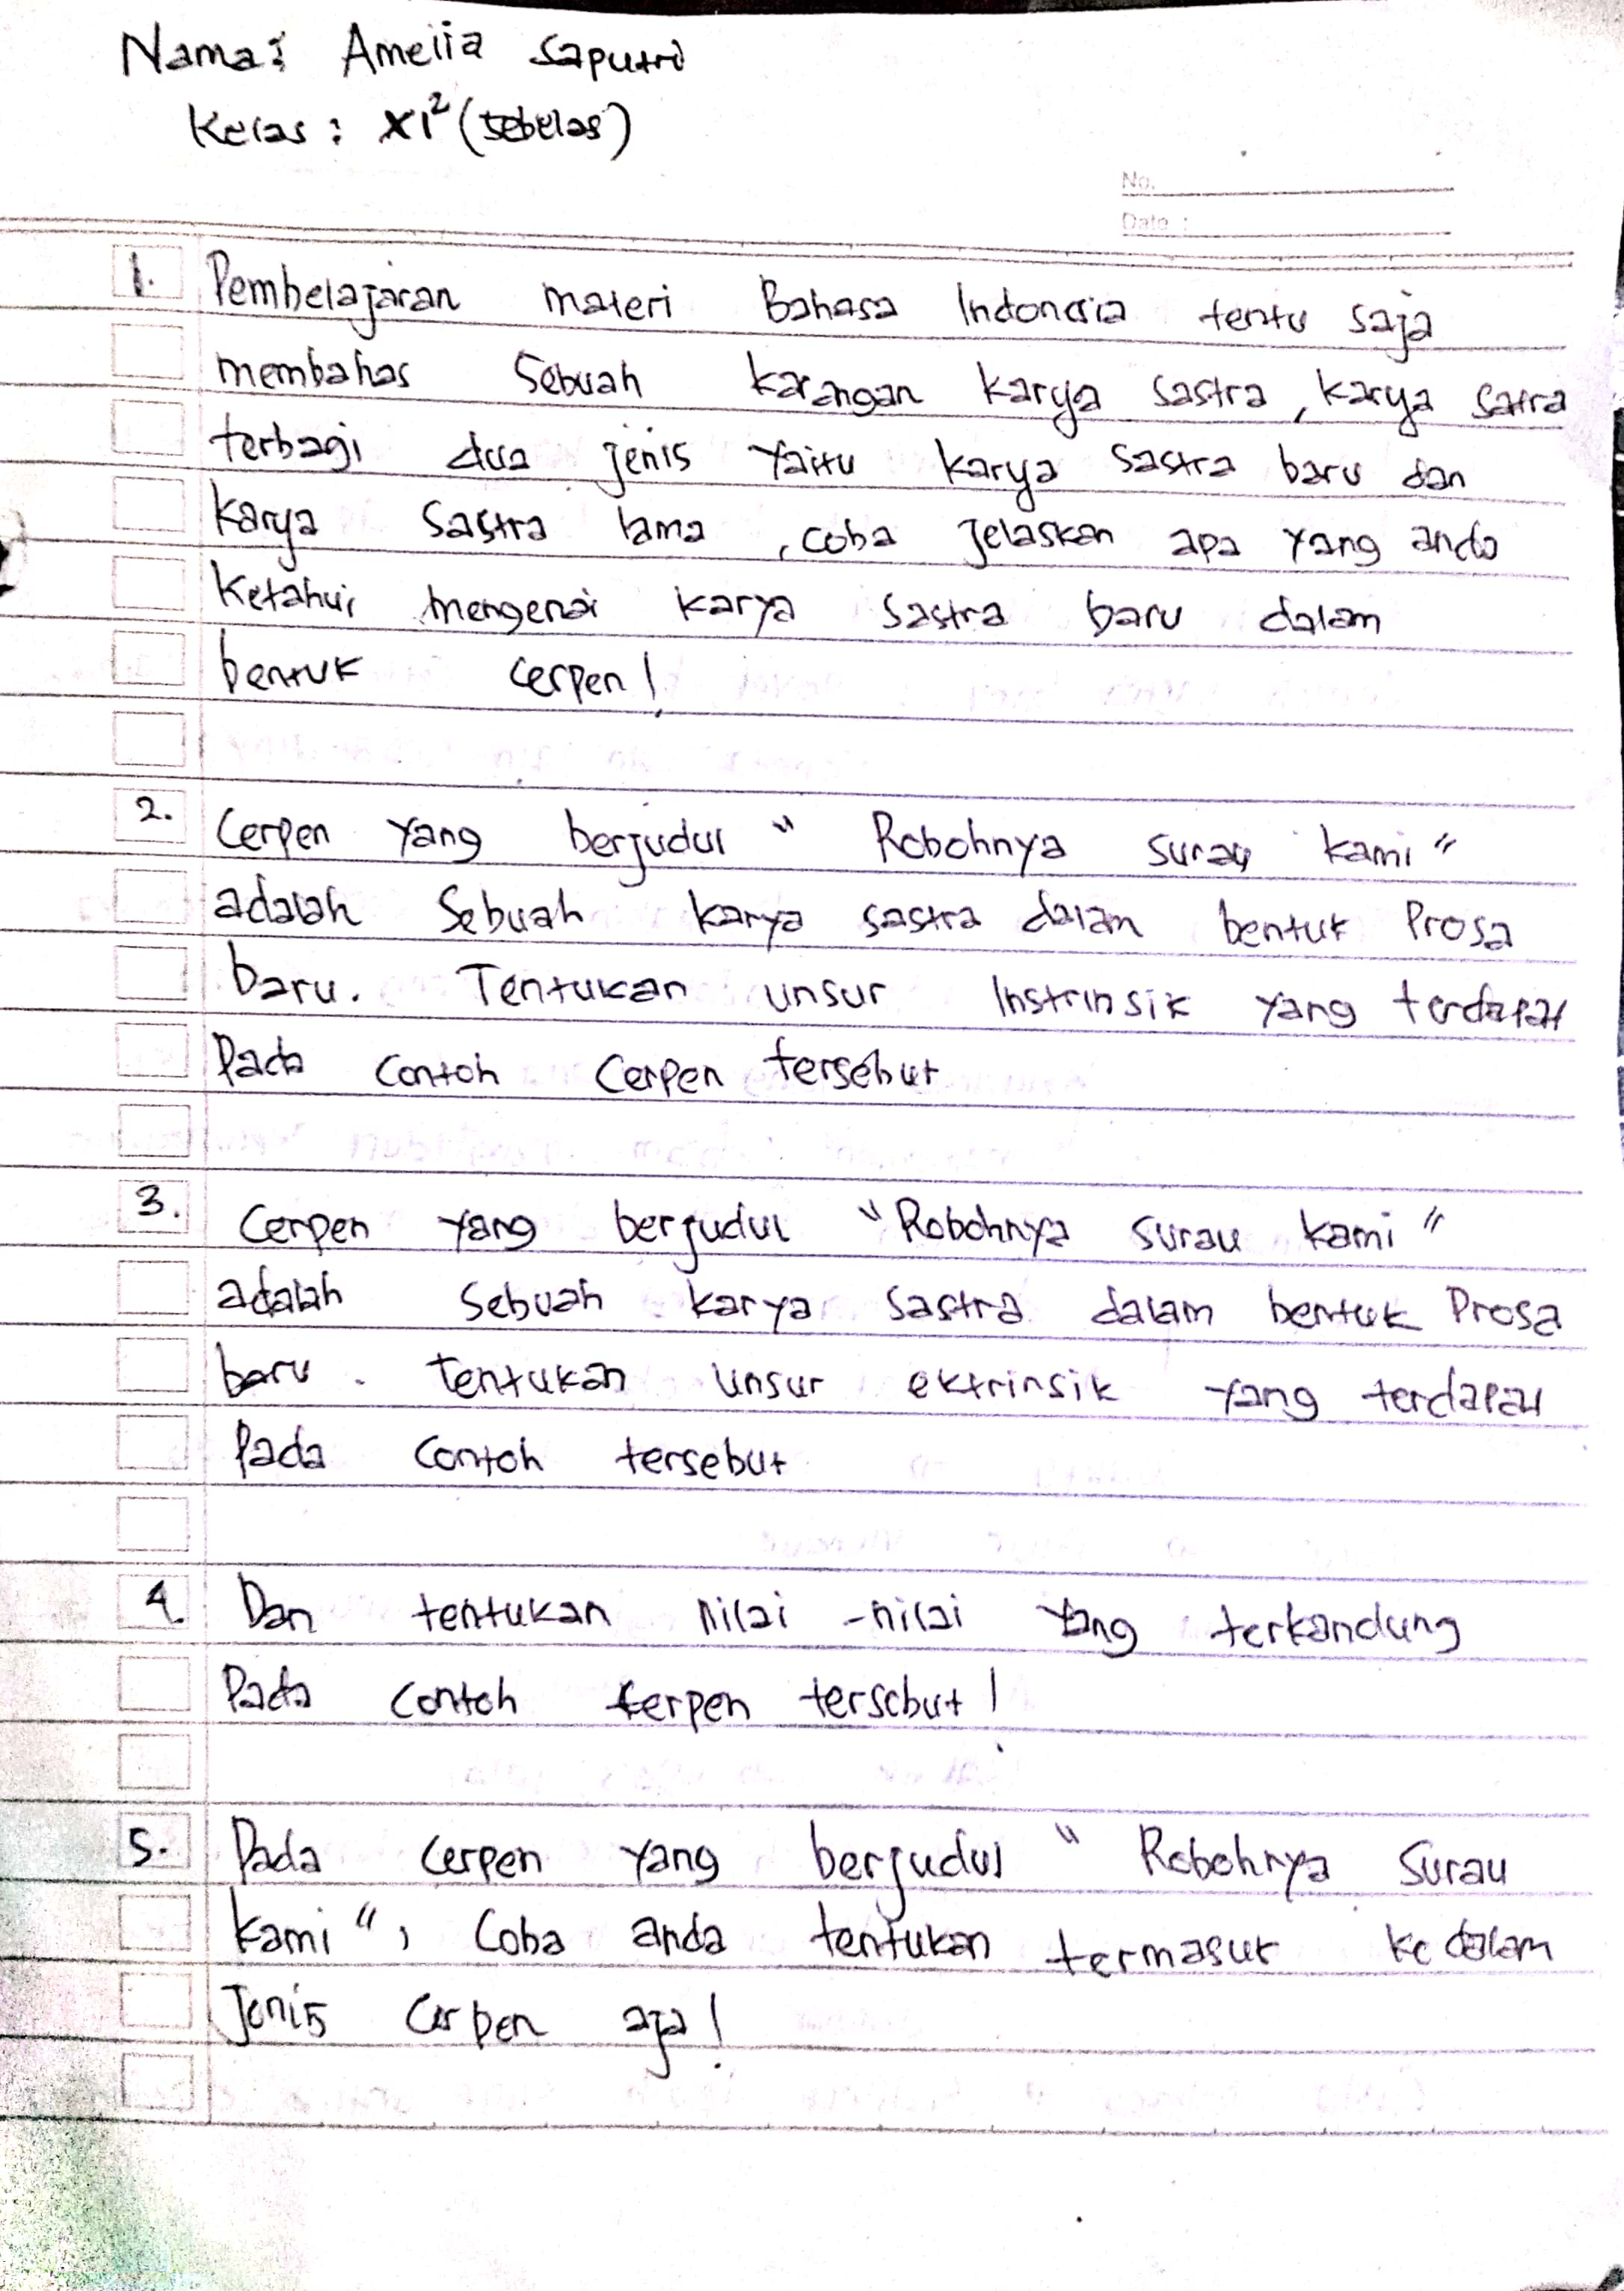 Nama: Amelia Saputri
Kelas: XI² (sebelas)
No.
Date :
1. Pembelajaran materi Bahasa Indonesia tentu saja
membahas Sebuah karangan karya sastra, karya satra
terbagi dua jenis yaitu karya sastra baru dan
karya sastra lama, coba jelaskan apa yang anda
Ketahui mengenai karya sastra baru dalam
bentuk Cerpen!
2. Cerpen yang berjudul "Robohnya surau kami"
adalah Sebuah karya sastra dalam bentuk Prosa
baru. Tentukan unsur Instrinsik yang terdapat
Pada Contoh Cerpen tersebut
3. Cerpen yang berjudul "Robohnya surau kami"
adalah Sebuah karya sastra dalam bentuk Prosa
baru. Tentukan unsur ektrinsik yang terdapat
Pada Contoh tersebut
4. Dan tentukan nilai-nilai yang terkandung
Pada Contoh Cerpen tersebut!
5. Pada Cerpen yang berjudul "Robohnya Surau
kami", Coba anda tentukan termasuk kedalam
Jenis Cerpen aja!